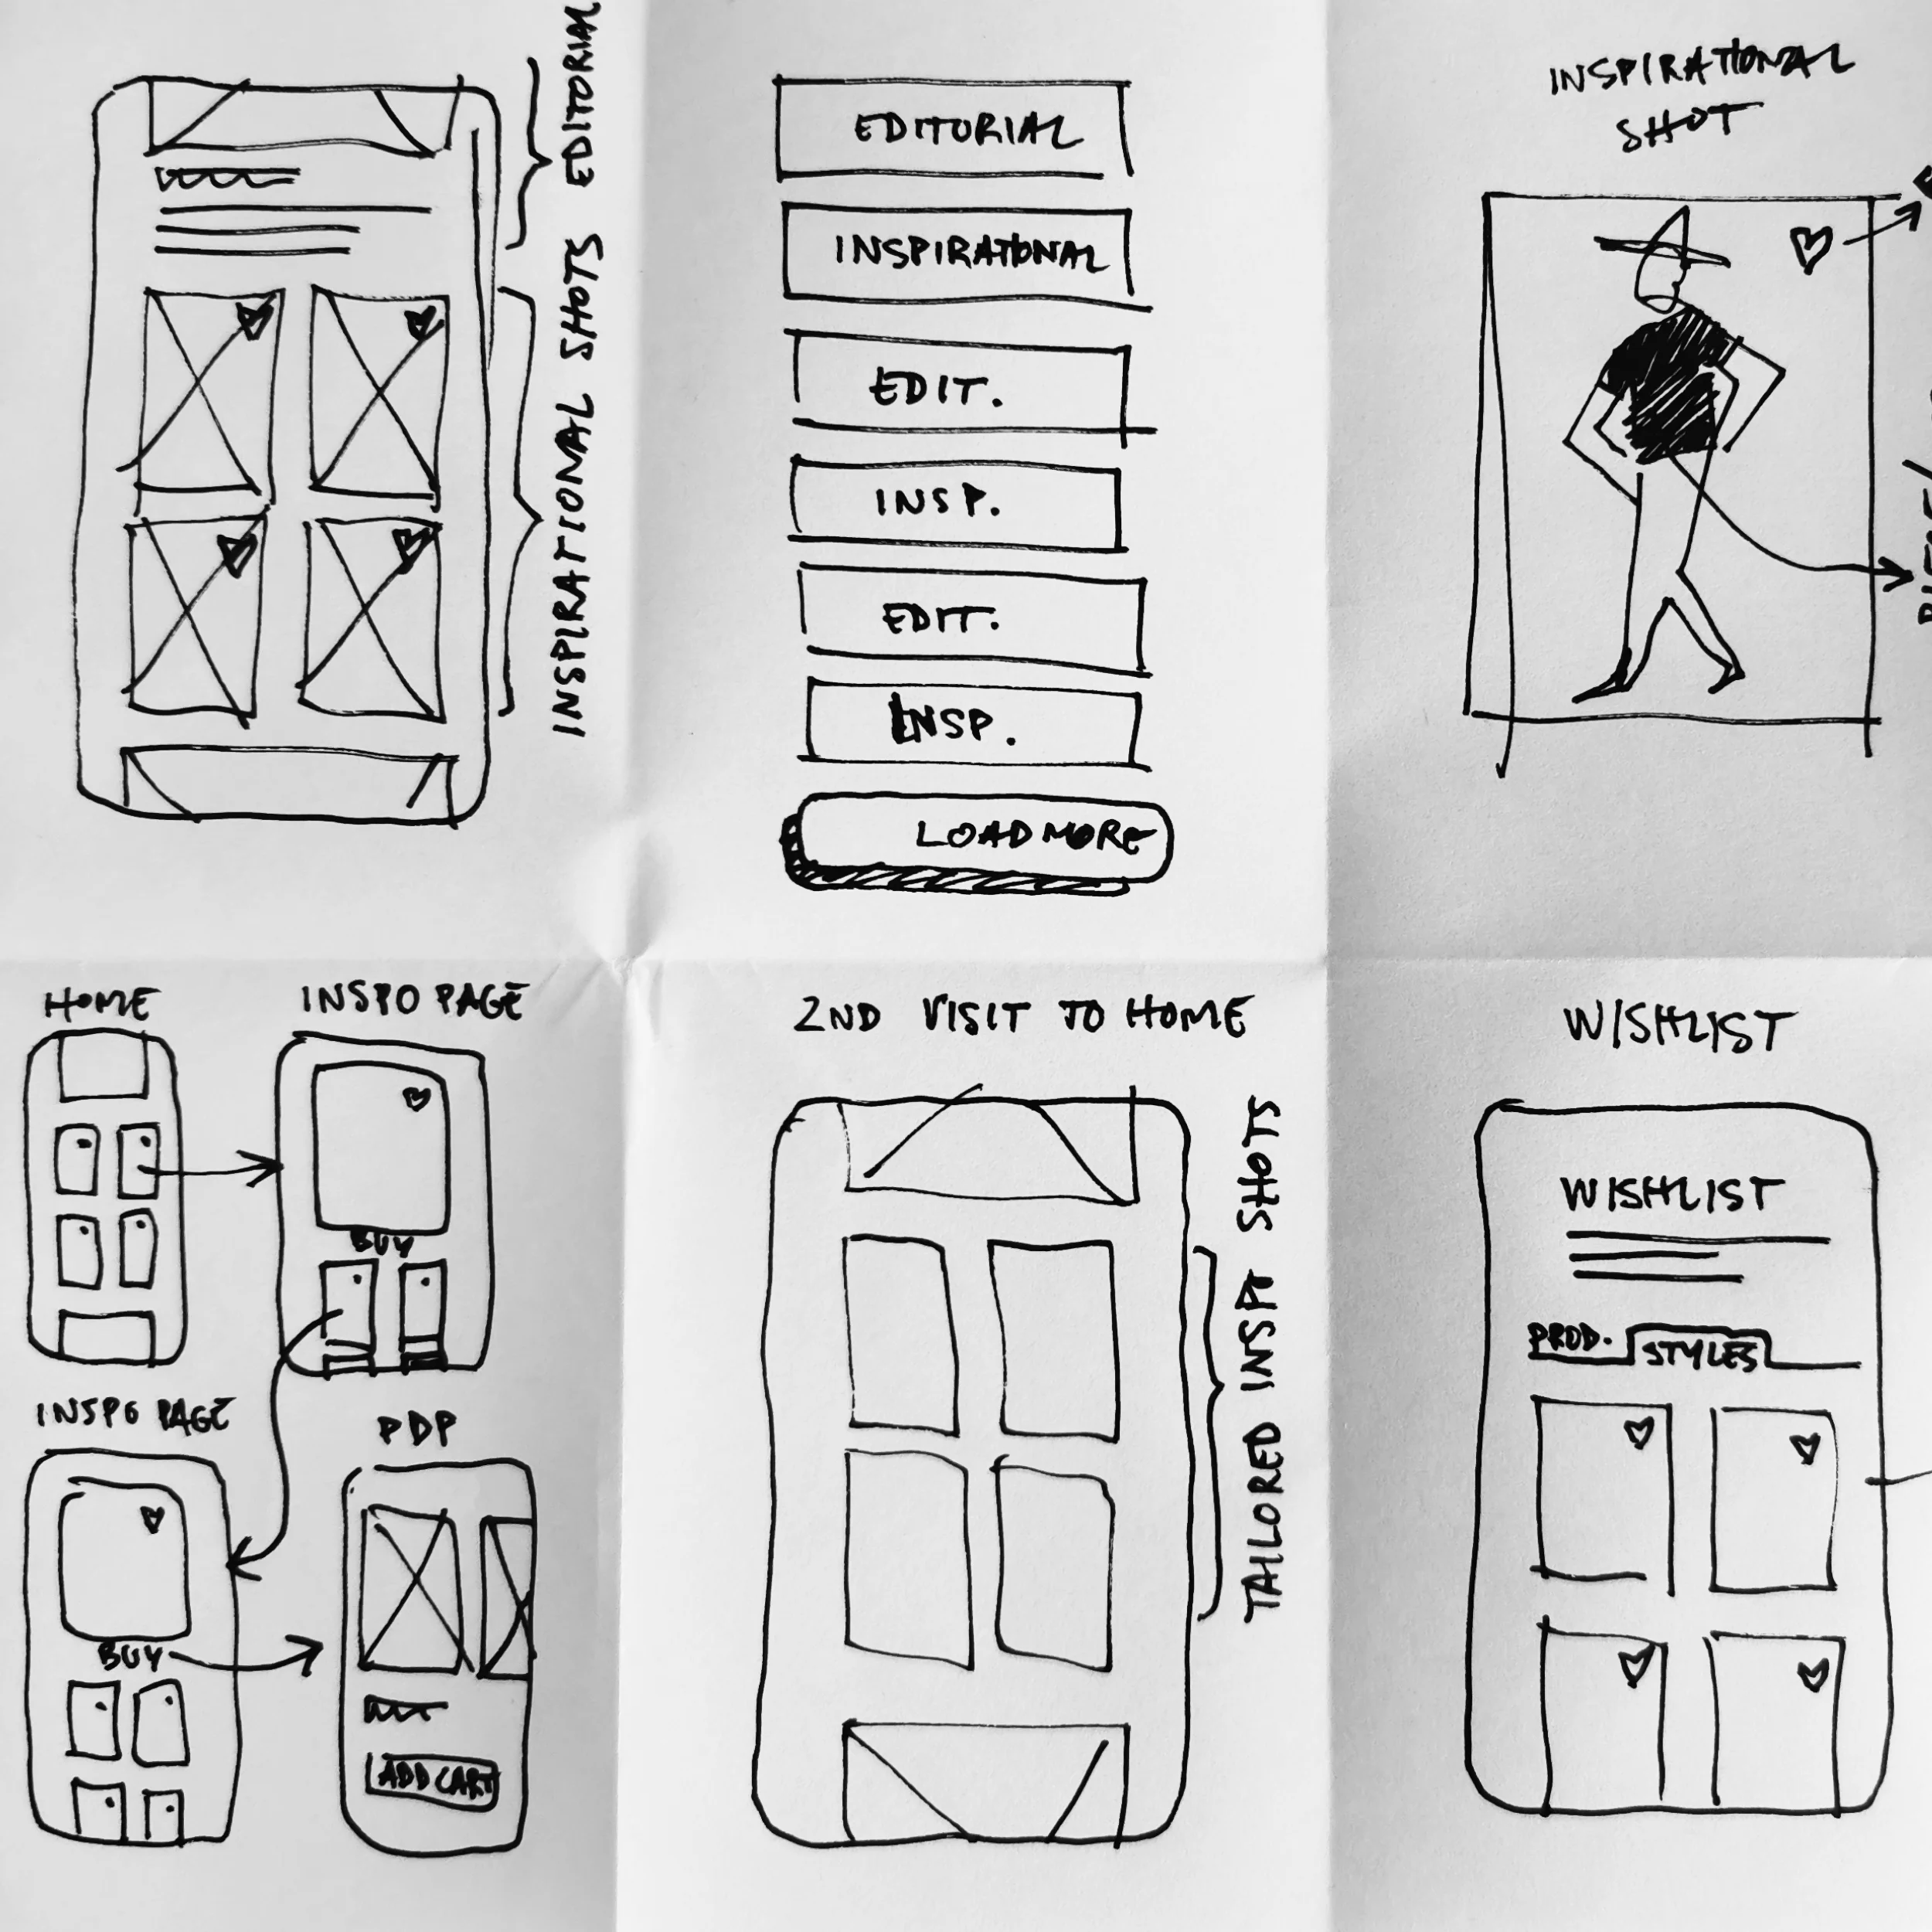 EDITORIAL
INSPIRATIONAL SHOTS
EDITORIAL
INSPIRATIONAL
EDIT.
INSP.
EDIT.
INSP.
LOAD MORE
INSPIRATIONAL
SHOT
HOME
INSPO PAGE
BUY
INSPO PAGE
BUY
PDP
ADD CART
2ND VISIT TO HOME
TAILORED INSP SHOTS
WISHLIST
WISHLIST
PROD.
STYLES